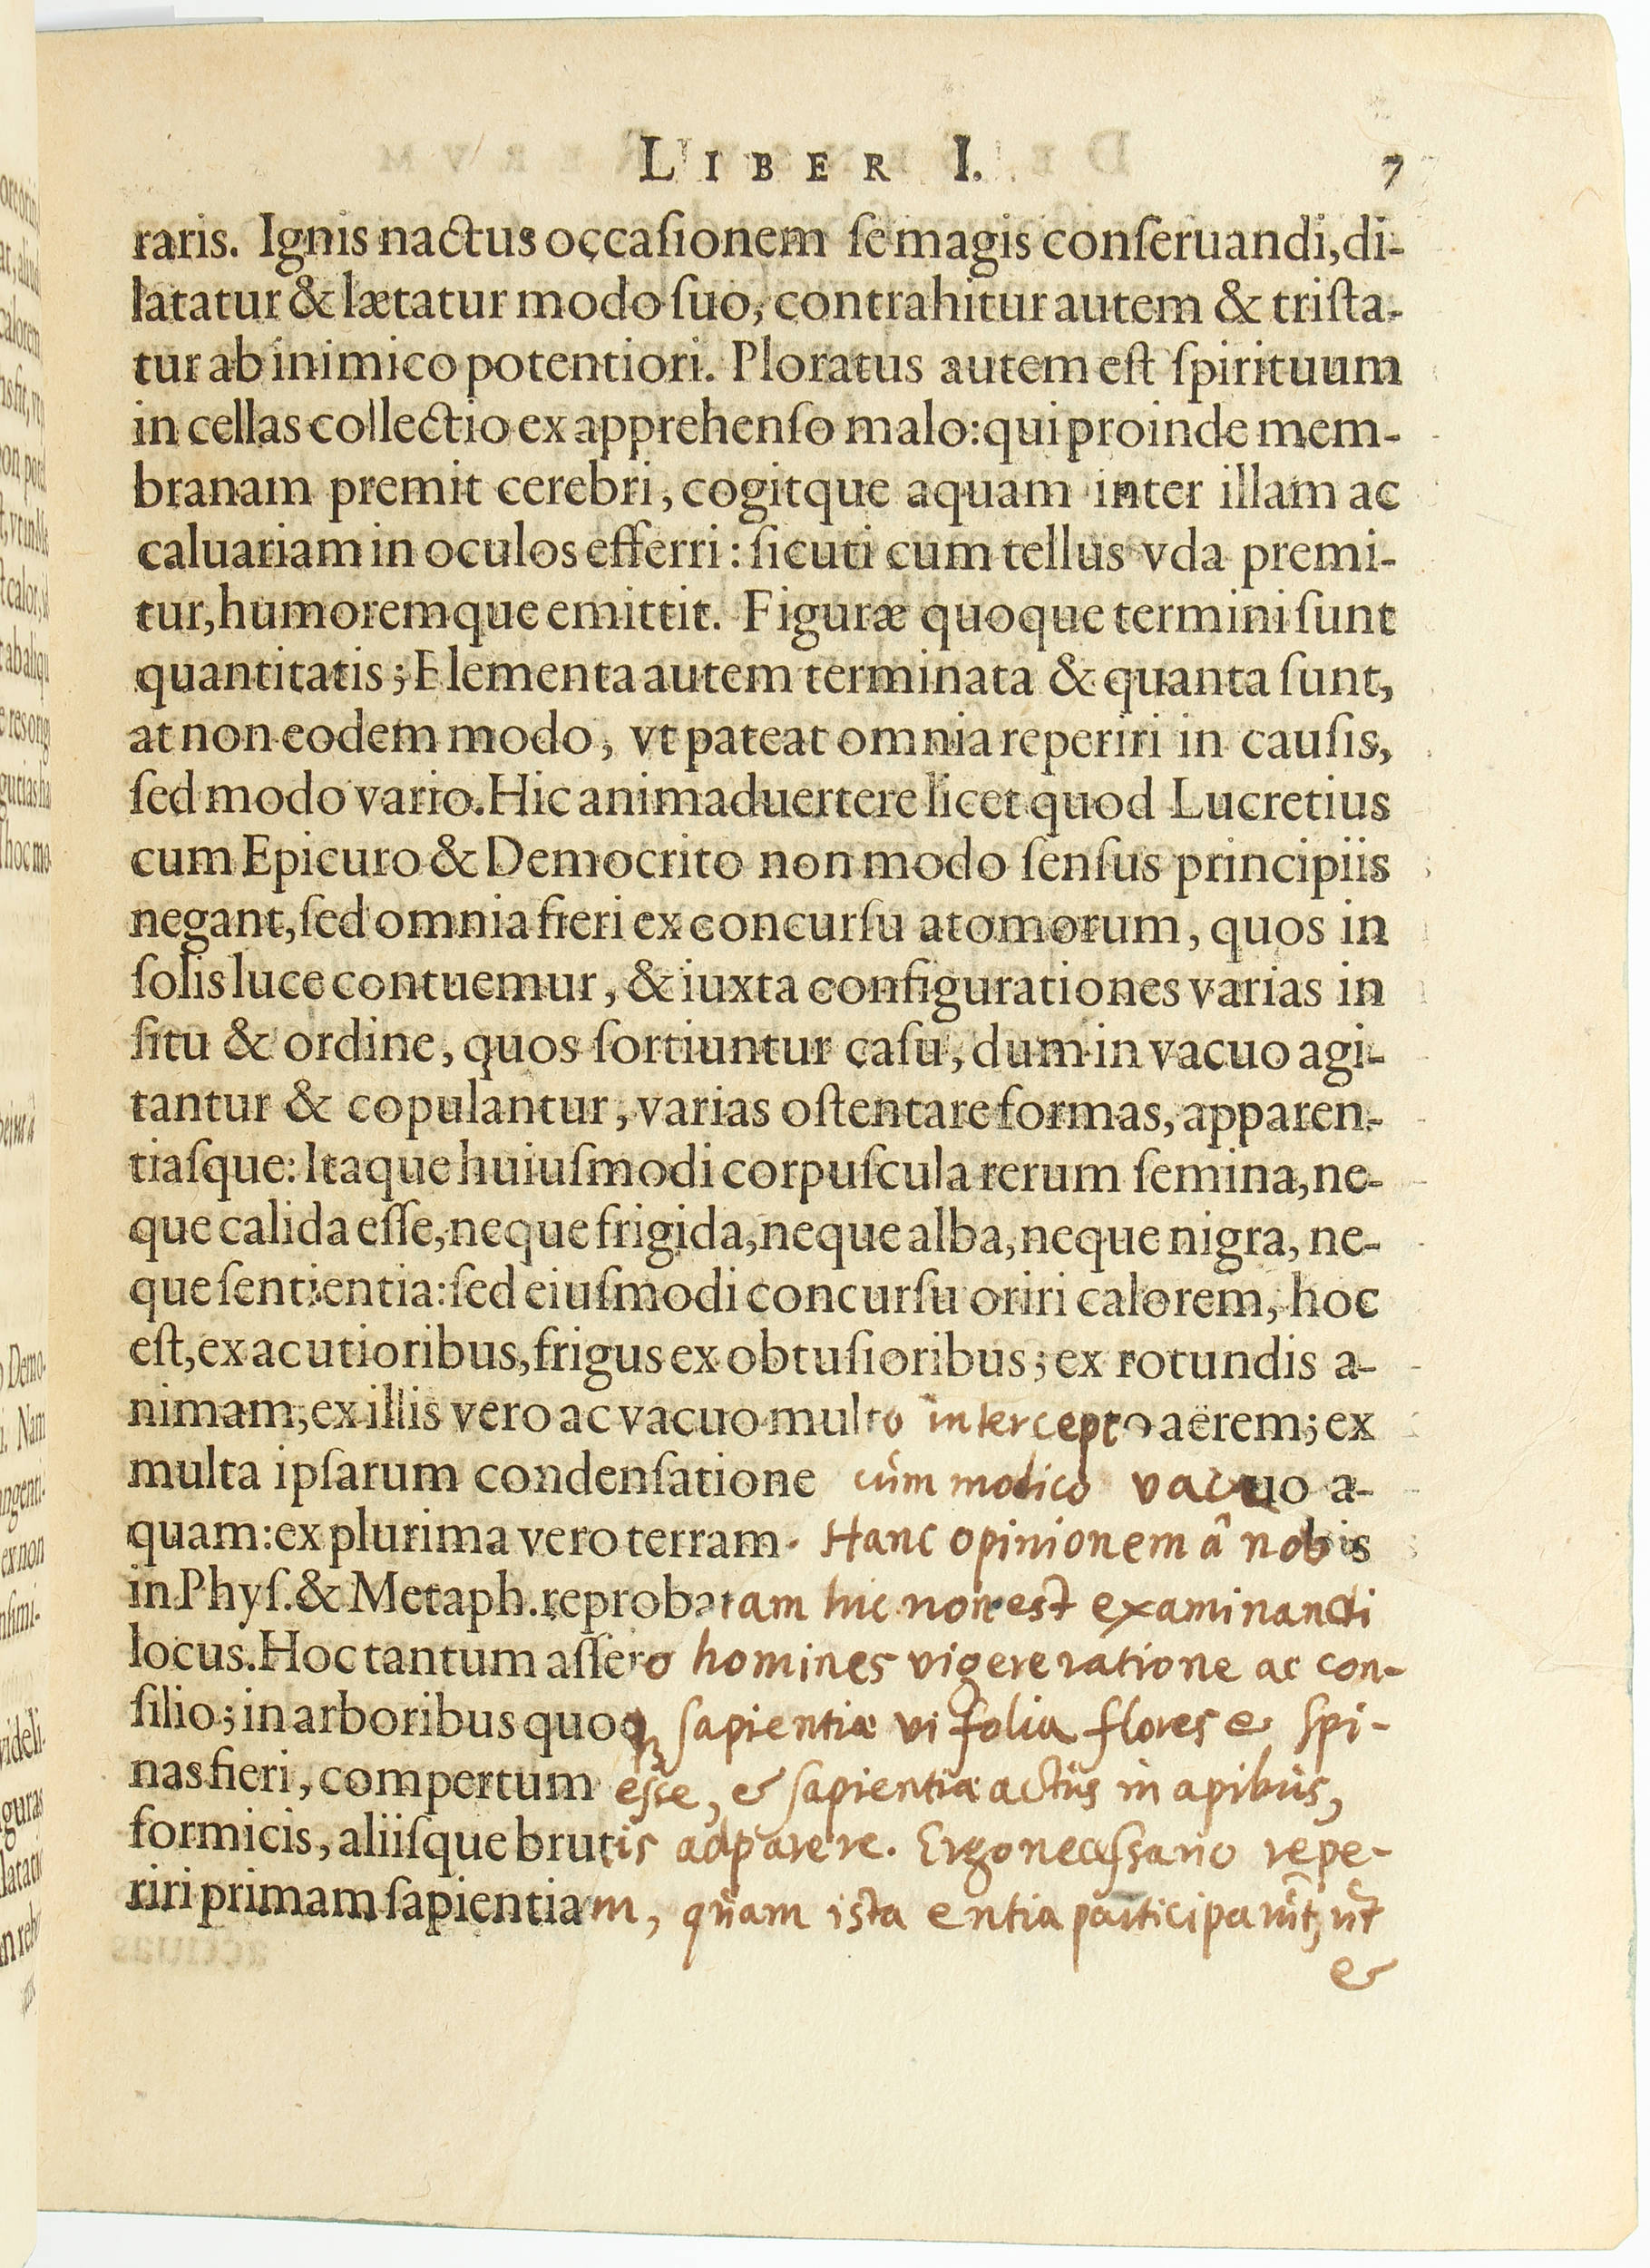 LIBER I. 7
raris. Ignis nactus occaſionem ſe magis conſeruandi, di-
latatur & lætatur modo ſuo, contrahitur autem & triſta-
tur ab inimico potentiori. Ploratus autem eſt ſpirituum
in cellas collectio ex apprehenſo malo: qui proinde mem-
branam premit cerebri, cogitque aquam inter illam ac
caluariam in oculos efferri: ſicuti cum tellus vda premi-
tur, humoremque emittit. Figuræ quoque termini ſunt
quantitatis; Elementa autem terminata & quanta ſunt,
at non eodem modo, vt pateat omnia reperiri in cauſis,
ſed modo vario. Hic animaduertere licet quod Lucretius
cum Epicuro & Democrito non modo ſenſus principiis
negant, ſed omnia fieri ex concurſu atomorum, quos in
ſolis luce contuemur, & iuxta configurationes varias in
ſitu & ordine, quos ſortiuntur caſu, dum in vacuo agi-
tantur & copulantur, varias oſtentare formas, apparen-
tiaſque: Itaque huiuſmodi corpuſcula rerum ſemina, ne-
que calida eſſe, neque frigida, neque alba, neque nigra, ne-
que ſentientia: ſed eiuſmodi concurſu oriri calorem, hoc
eſt, ex acutioribus, frigus ex obtuſioribus; ex rotundis a-
nimam; ex illis vero ac vacuo multo intercepto aërem; ex
multa ipſarum condenſatione cúm modico vacuo a-
quam: ex plurima vero terram. Hanc opinionem â nobis
in Phyſ. & Metaph. reprobatam hic non est examinandi
locus. Hoc tantum aſſero homines vigere ratione ac con-
ſilio; in arboribus quoq; sapientiæ vi folia flores & spi-
nas fieri, compertum esse, & sapientiæ actús in apibús,
formicis, aliiſque brutis adparere. Ergo necessario repe-
riri primam ſapientiam, quam ista entia participarint, út
&
actuus